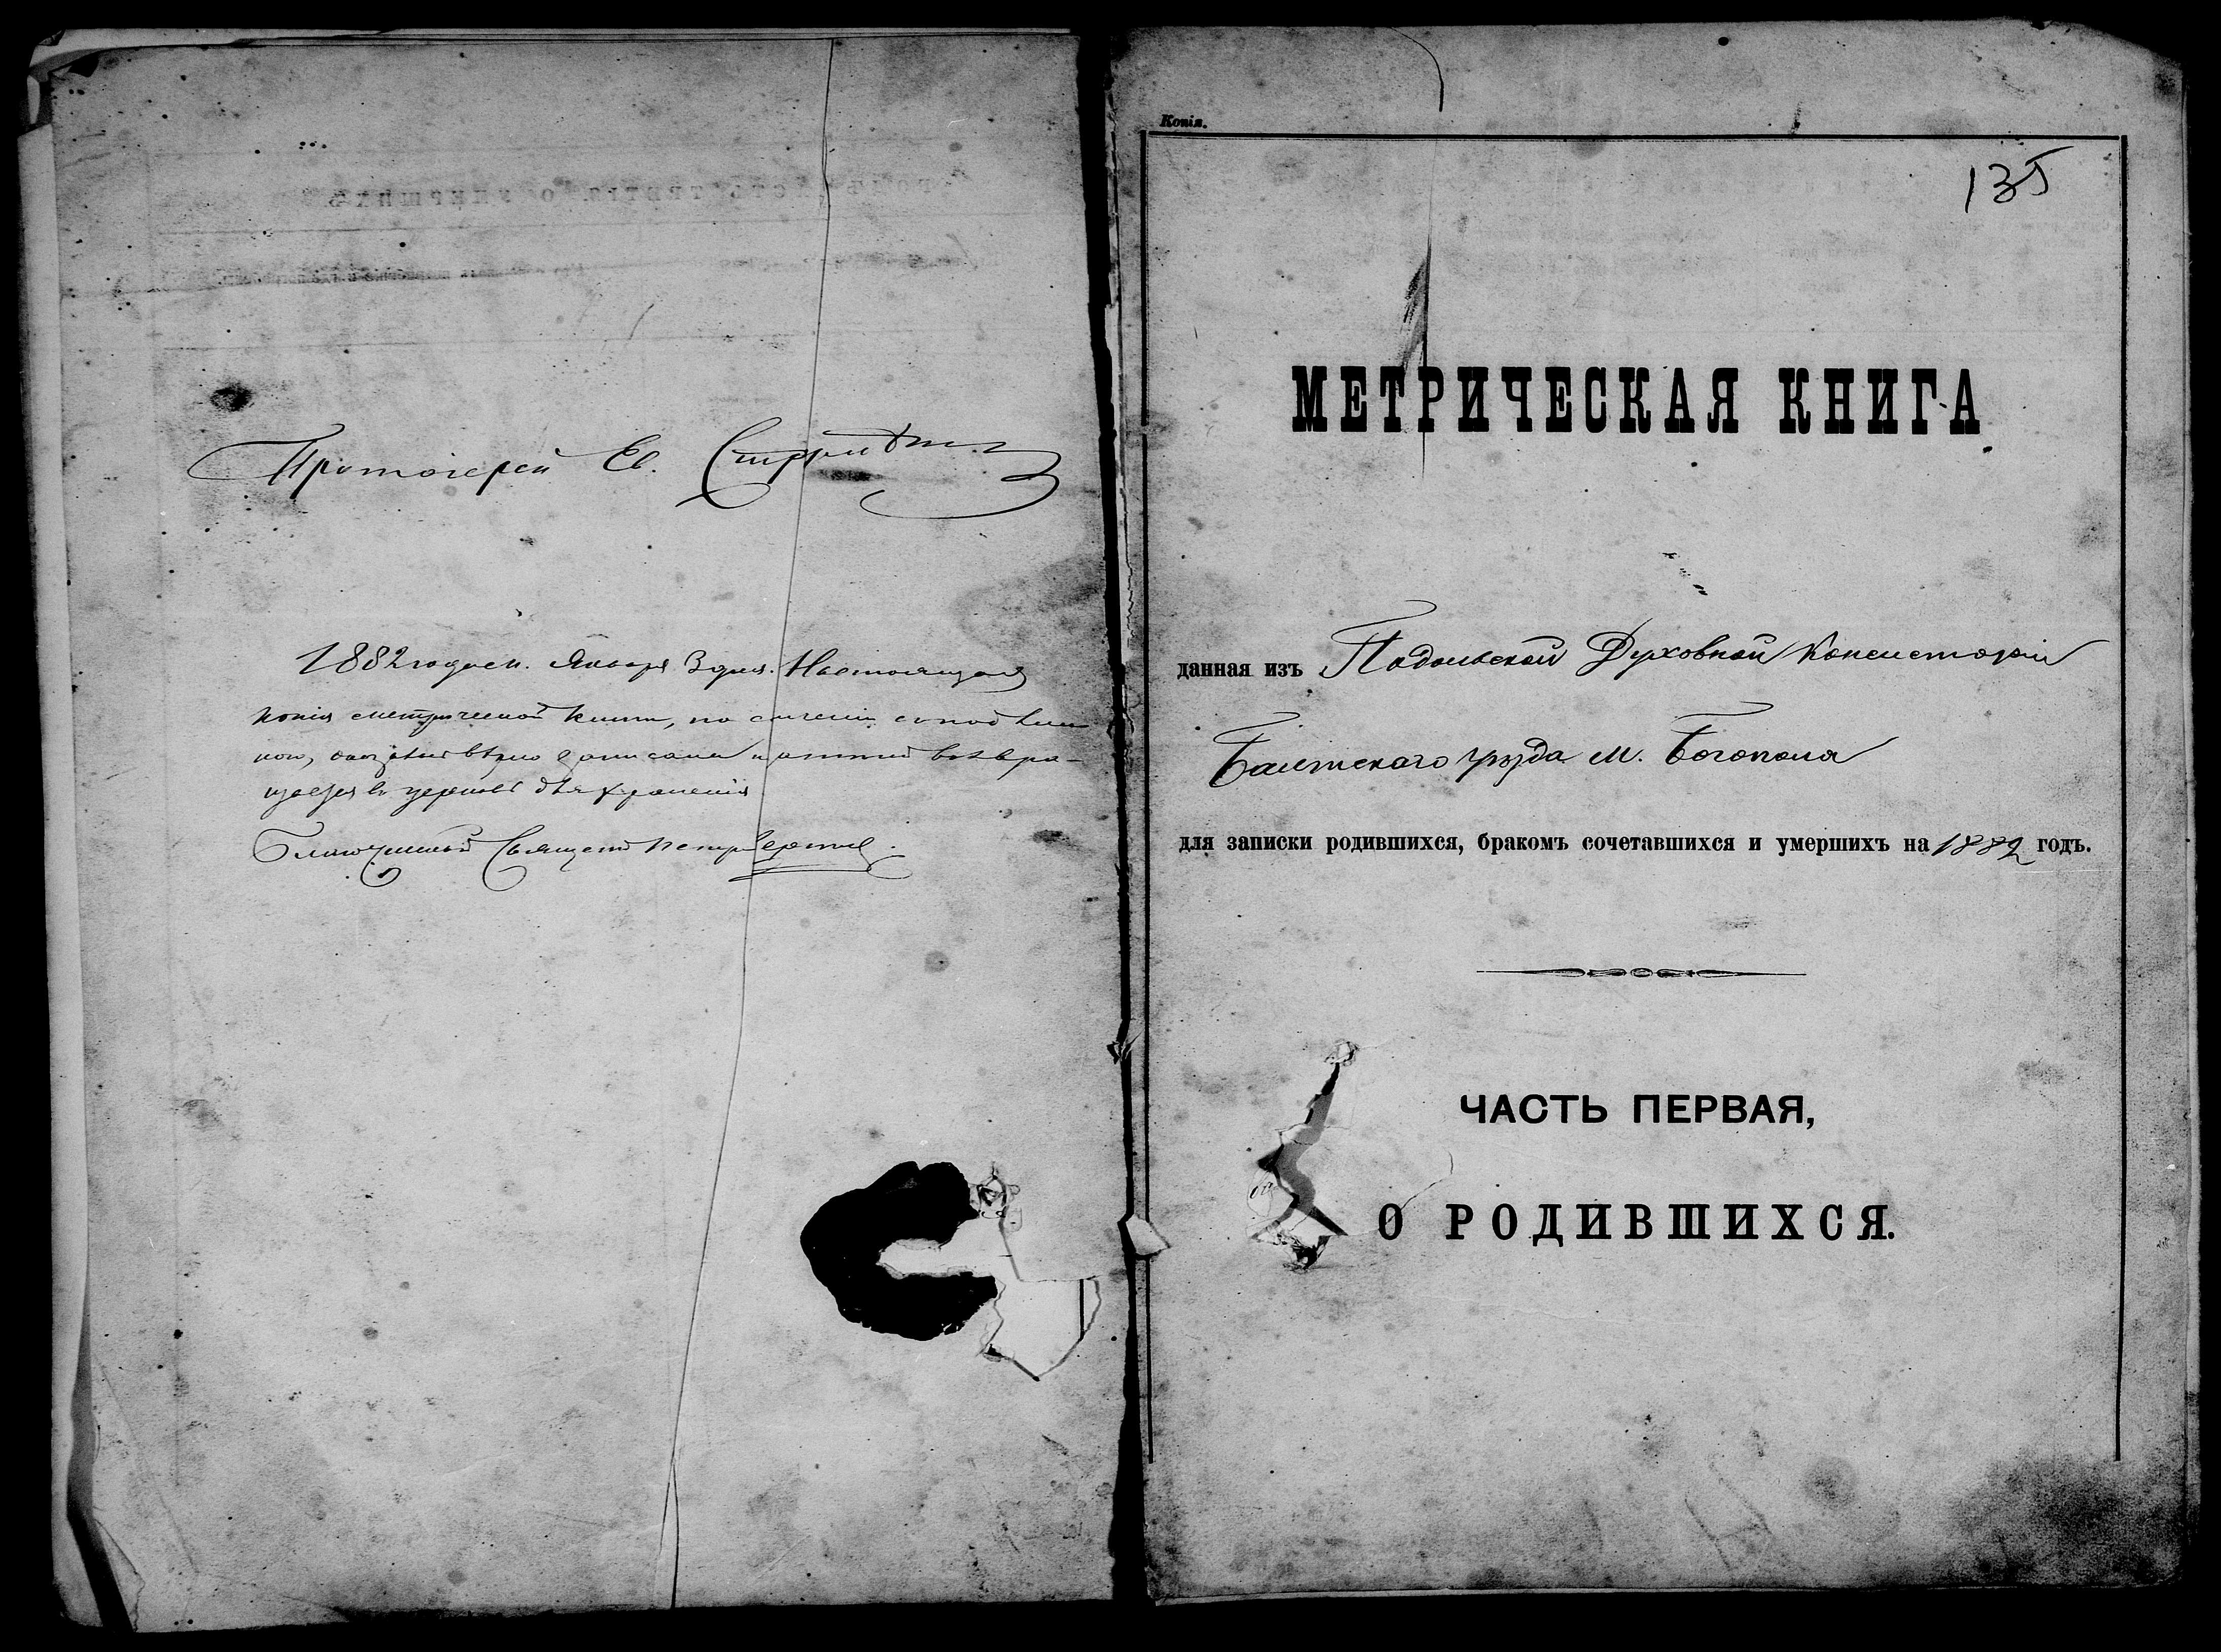 Протоіерей Ев.
1882 года Января 3 дня. Настоящая
копія метрической книги, по сличеніи съ подлин
ною, вѣрно записана возвра-
щается въ церковь для храненія
Благочинный Священ Петръ
Копія.
135
МЕТРИЧЕСКАЯ КНИГА
данная изъ Подольской Духовной Консисторіи
Балтскаго уѣзда м. Богополя
для записки родившихся, бракомъ сочетавшихся и умершихъ на 1882 годъ.
ЧАСТЬ ПЕРВАЯ,
О РОДИВШИХСЯ.